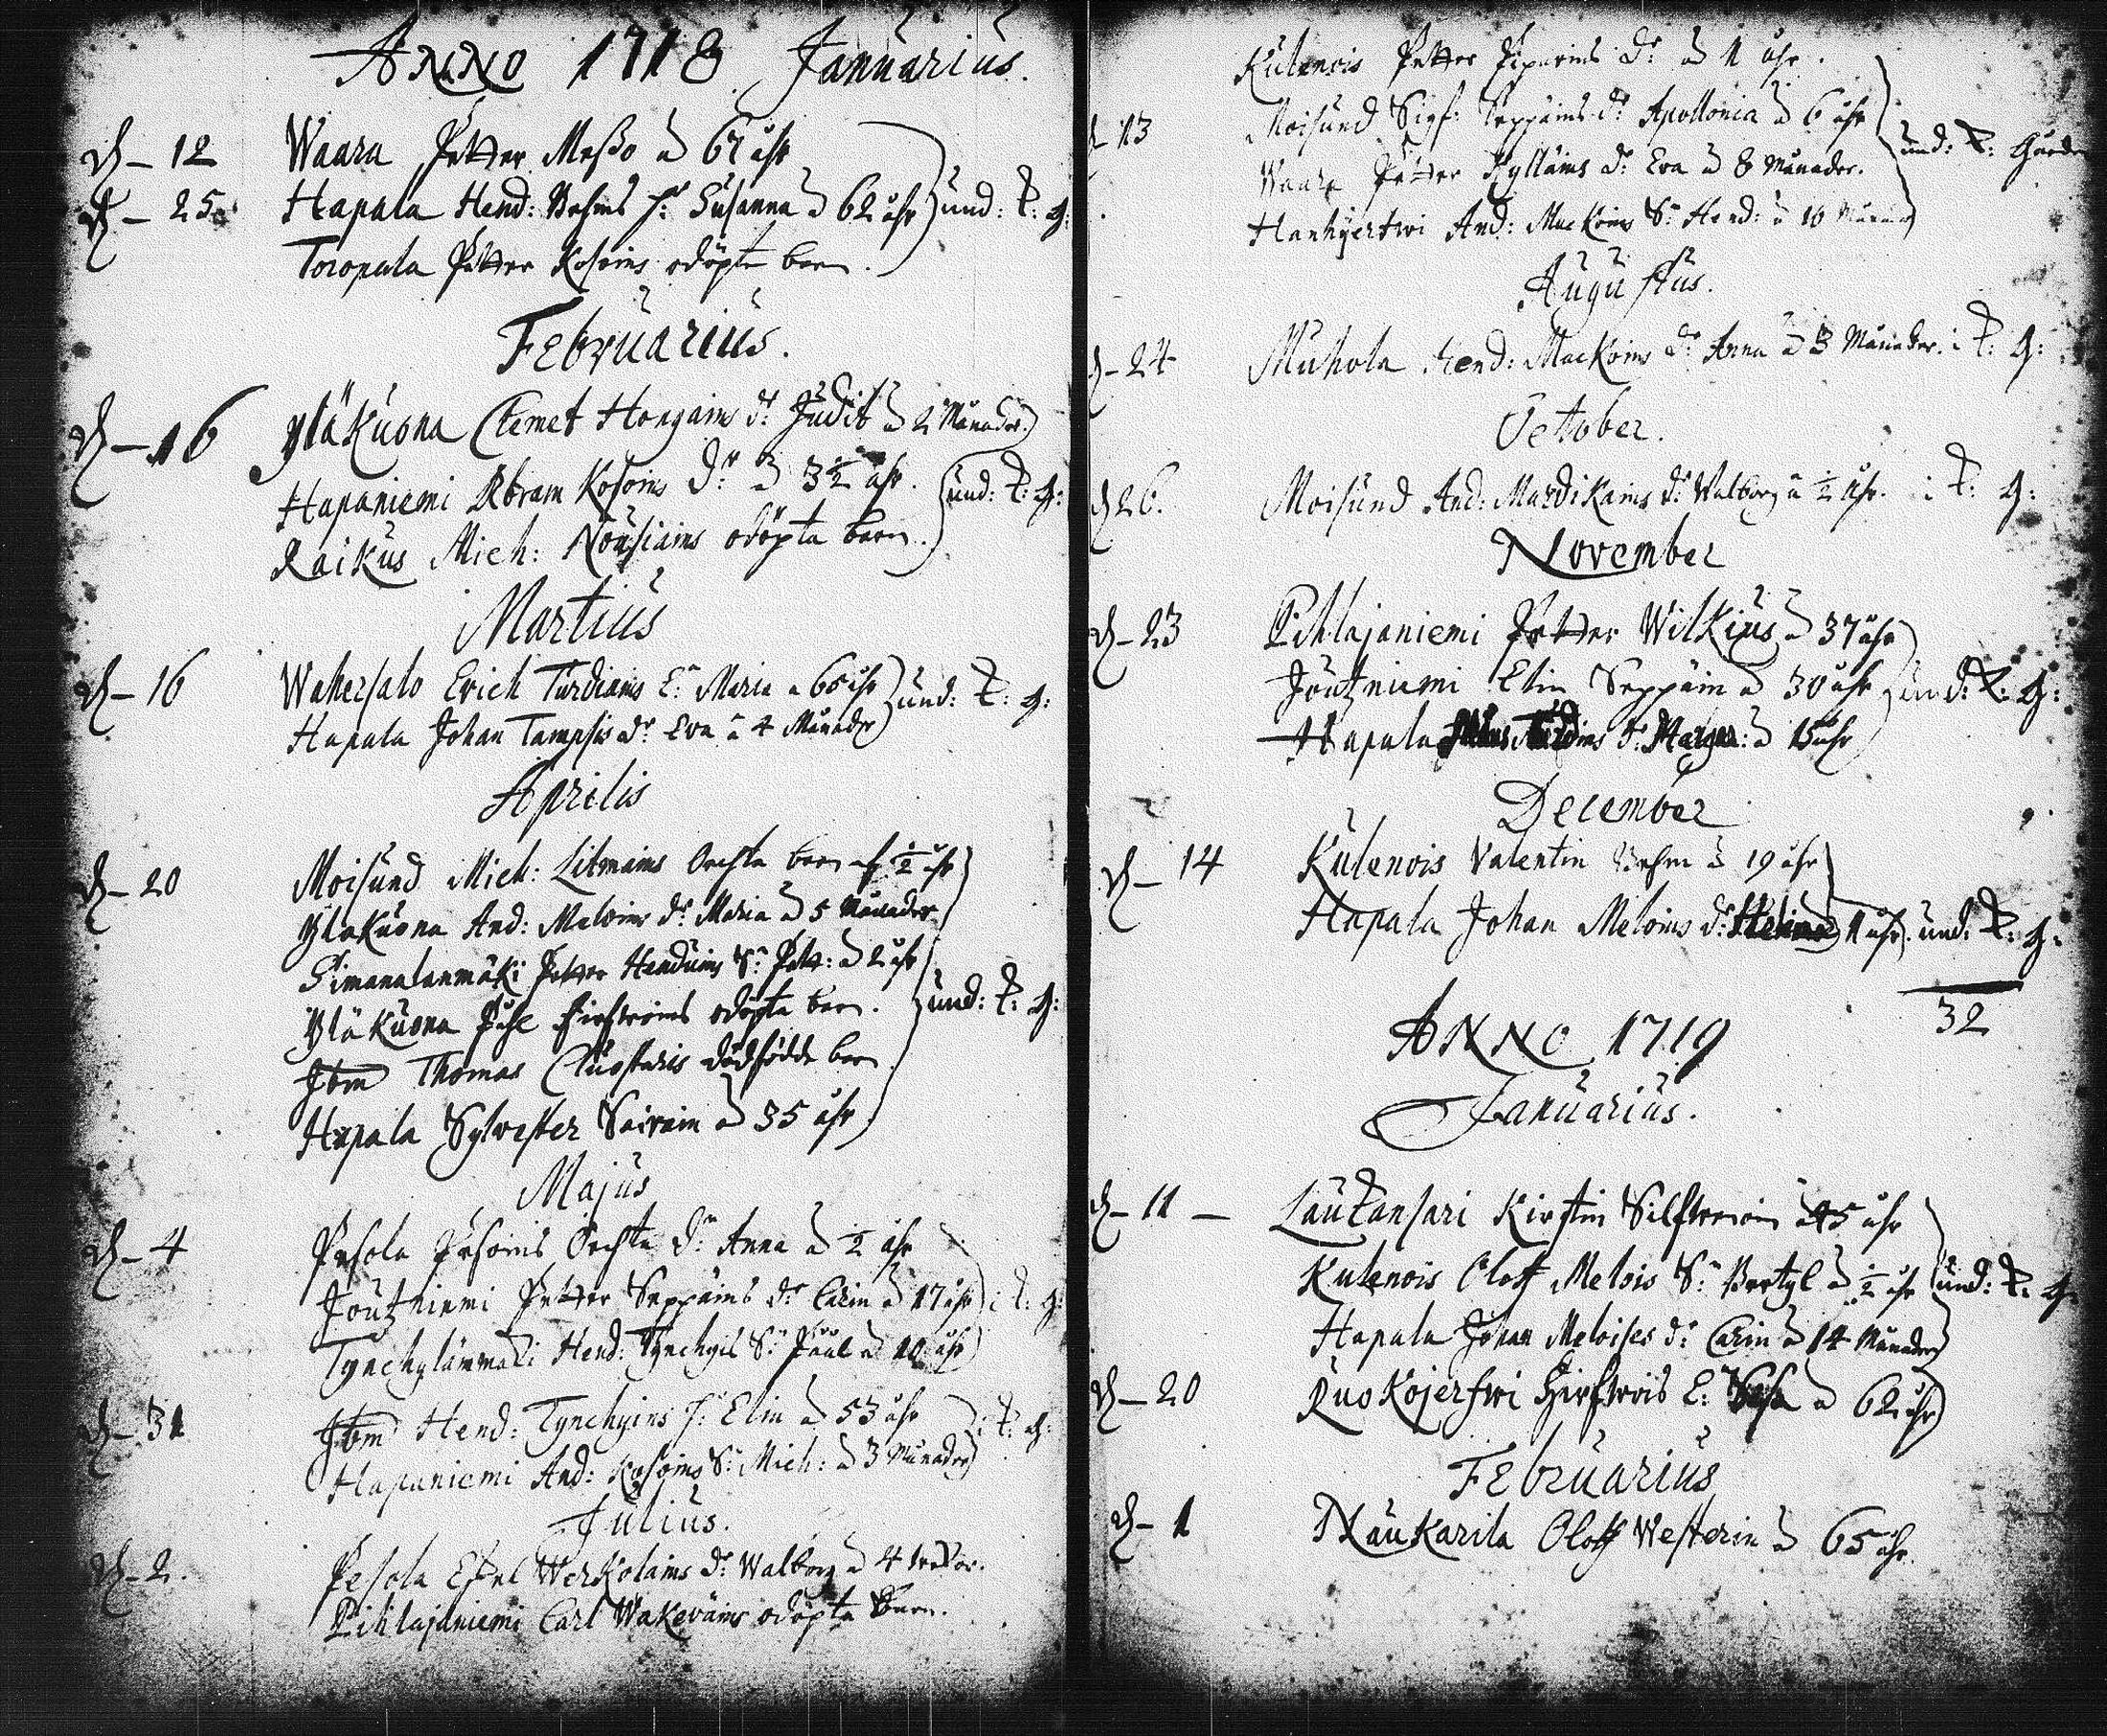 ANNO 1718 Januarius.
d – 12 Waara Petter Meßo a 67 åhr
d – 25 Hapala Hend: h: Susanna a 62 åhr und: K: g:
Toropala Petter Kosoins odöpta barn.
Februarius.
d – 16 Yläkuona Clemet Hongains dr Judit a 2 Månader.
Hapaniemi Abram Kosoins dr a 3½ åhr. und: K: g:
Raikus Mich: Nousiains odöpta barn.
Martius
d – 16 Wahersalo Erich Turdiains E: Maria a 65 åhr und: K: g:
Hapala Johan Tampsis dr Eva a 4 Månader
Aprilis
d – 20 Moisund Mich: Litmains Oechta barn af ½ åhr
Yläkuona And: Meloins dr Maria a 5 Månader
Simanalanmäki Petter Henduins Sn Pett: a 2 åhr
Yläkuona odöpta barn. und: K: g:
Ibm Thomas dödfödde barn
Hapala Sylvester Sairain a 35 åhr
Majus
d – 4 Pesola Pesoinis Oechta dr Anna a ½ åhr
Joutzniemi Petter Seppäins dr Carin a 17 åhr i K: g:
Hend: Sn Påul a 10 åhr
d – 31 Ibm Hend: Tynchyins h: Elin a 53 åhr i K: g:
Hapaniemi And: Kosoins Sn Mich: a 3 Månader
Julius.
d – 2. Pesola Werkolains dr Walborg a 4
Pihlajaniemi Carl Wakeväins odöpta barn.
Kulenois Petter Piparins dr a 11 åhr.
d 13 Moisund Sigf: Seppäins dr Apollonia a 6 åhr
Waara Petter Kylläins dr Eva a 8 Månader. und: K: Gården
And: Mackoins Sn Hend: a 10 Månader
Augustus.
d – 24 Muhola Hend: Mackoins dr Anna a 3 Månader. i K: g:
October.
d 26. Moisund And: Mardikains dr Walborg a ½ åhr. i K: g:
November
d – 23 Pihlajaniemi Petter Wilkius a 37 åhr
Joutzniemi Elin Seppäin a 30 åhr und: K: g:
Hapala dr Margar: a 15 åhr
December
d – 14 Kulenois Valentin a 19 åhr
Hapala Johan Meloins dr Helena 11 åhr. und: K: g:
32
ANNO 1719
Januarius.
d – 11 – Lautansari Kirstin a 45 åhr
Kulenois Oloff Melois Sn Bertyl a ½ åhr und: K: g:
Hapala Johan Meloises dr Carin a 14 Månader
d – 20 Ruokojerfwi E: a 62 åhr
Februarius
d – 1 Naukarila Oloff Westerin a 65 åhr.